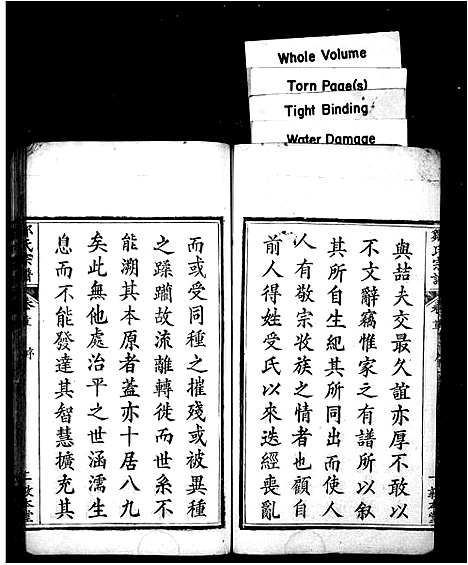 Whole Volume
Torn Page(s)
Tight Binding
Water Damage
與喆夫交最久誼亦厚不敢以
不文辭竊惟家之有譜所以叙
其所自生紀其所同出而使人
人有敬宗牧族之情者也顧自
前人得姓受氏以來迭經喪亂
而或受同種之摧殘或被異種
之蹂躪故流離轉徙而世系不
能溯其本原者蓋亦十居八九
矣此無他處治平之世涵濡生
息而不能發達其智慧擴充其
氏宗譜
卷首